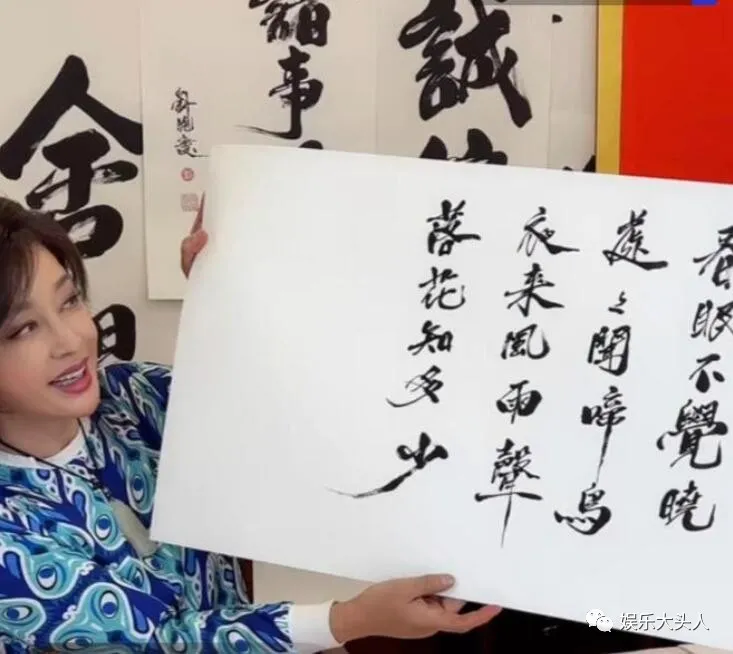 春眠不覺曉
處々聞啼鳥
夜来風雨聲
落花知多少
誠
諸事
劉曉慶
舍
娱乐大头人